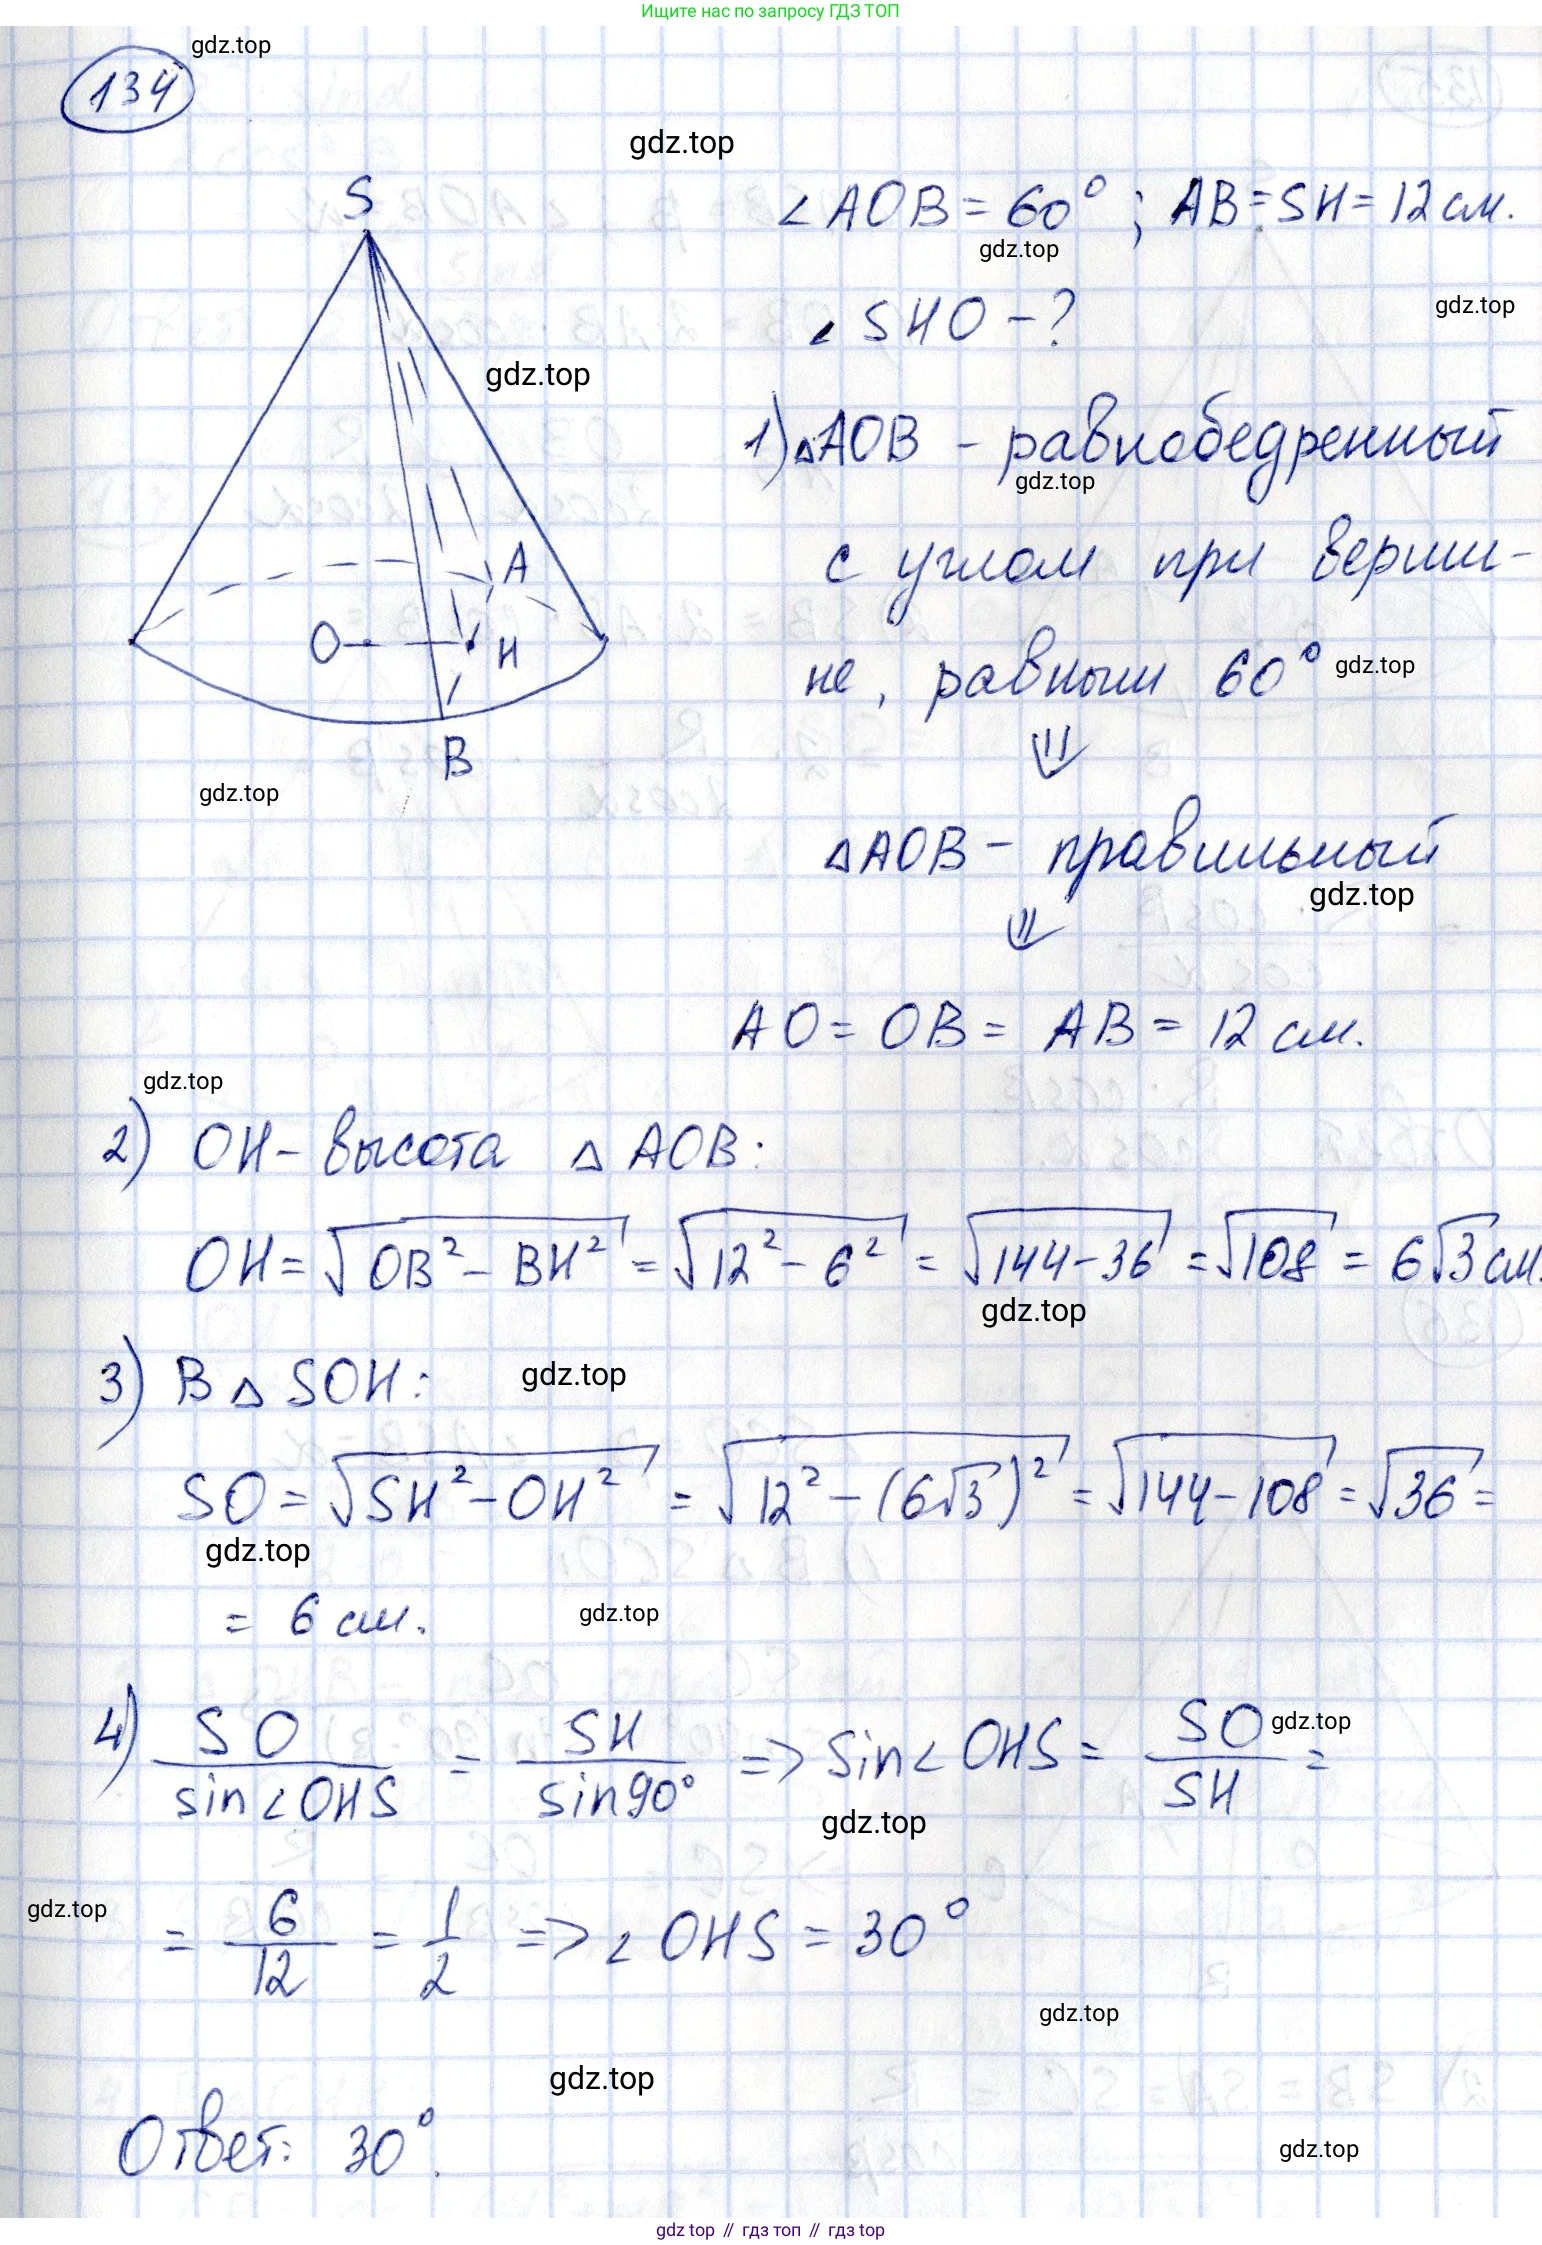 Ищите нас по запросу ГДЗ ТОП
gdz.top
134
gdz.top
S
∠AOB = 60° ; AB = SH = 12 см.
gdz.top
gdz.top
∠ SHO - ?
gdz.top
1) △AOB - равнобедренный
gdz.top
с углом при верши-
A
O
H
не, равным 60°
gdz.top
⇓
B
gdz.top
△AOB - правильный
gdz.top
⇓
AO = OB = AB = 12 см.
gdz.top
2) OH - высота △ AOB:
OH = √(OB² - BH²) = √(12² - 6²) = √(144 - 36) = √108 = 6√3 см.
gdz.top
3) В △ SOH:
gdz.top
SO = √(SH² - OH²) = √(12² - (6√3)²) = √(144 - 108) = √36 =
gdz.top
= 6 см.
gdz.top
4) SO / sin∠OHS = SH / sin90° => sin∠OHS = SO / SH =
gdz.top
gdz.top
= 6/12 = 1/2 => ∠OHS = 30°
gdz.top
gdz.top
gdz.top
Ответ: 30°.
gdz.top
gdz top // гдз топ // gdz top